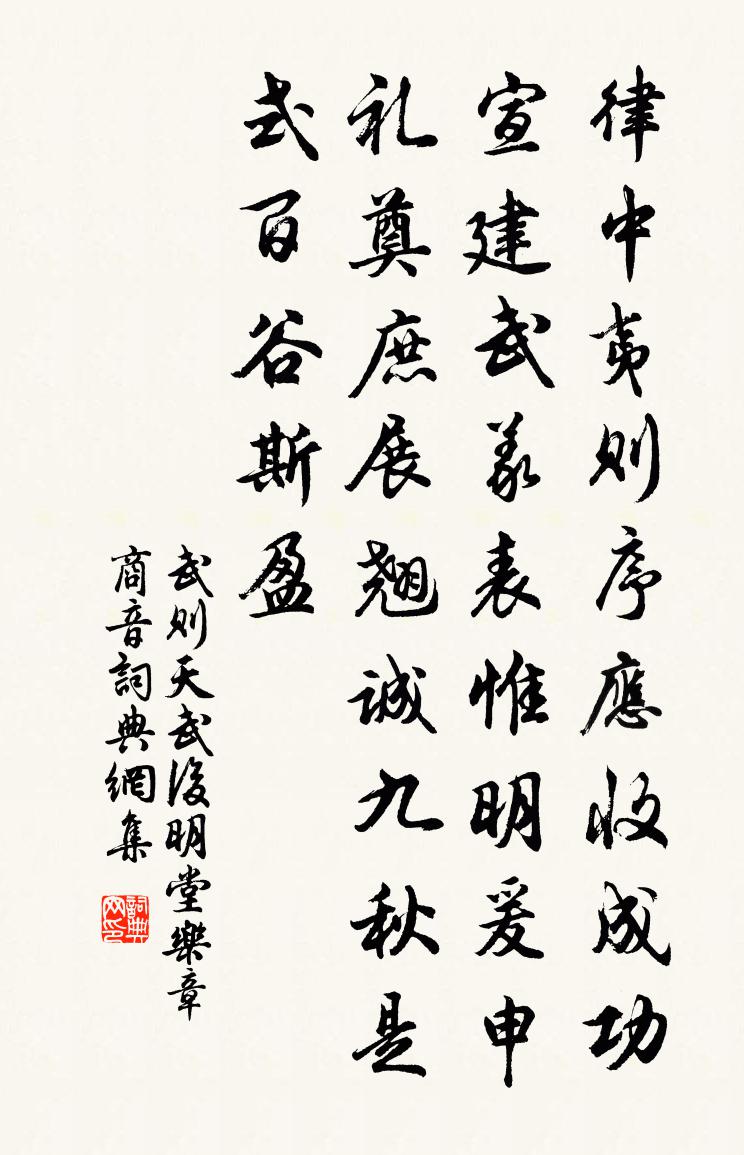 律中夷则序應收成功
宣建武義表惟明爰申
礼奠庶展翹诚九秋是
式百谷斯盈
武则天武後明堂樂章
商音詞典網集
詞典网印